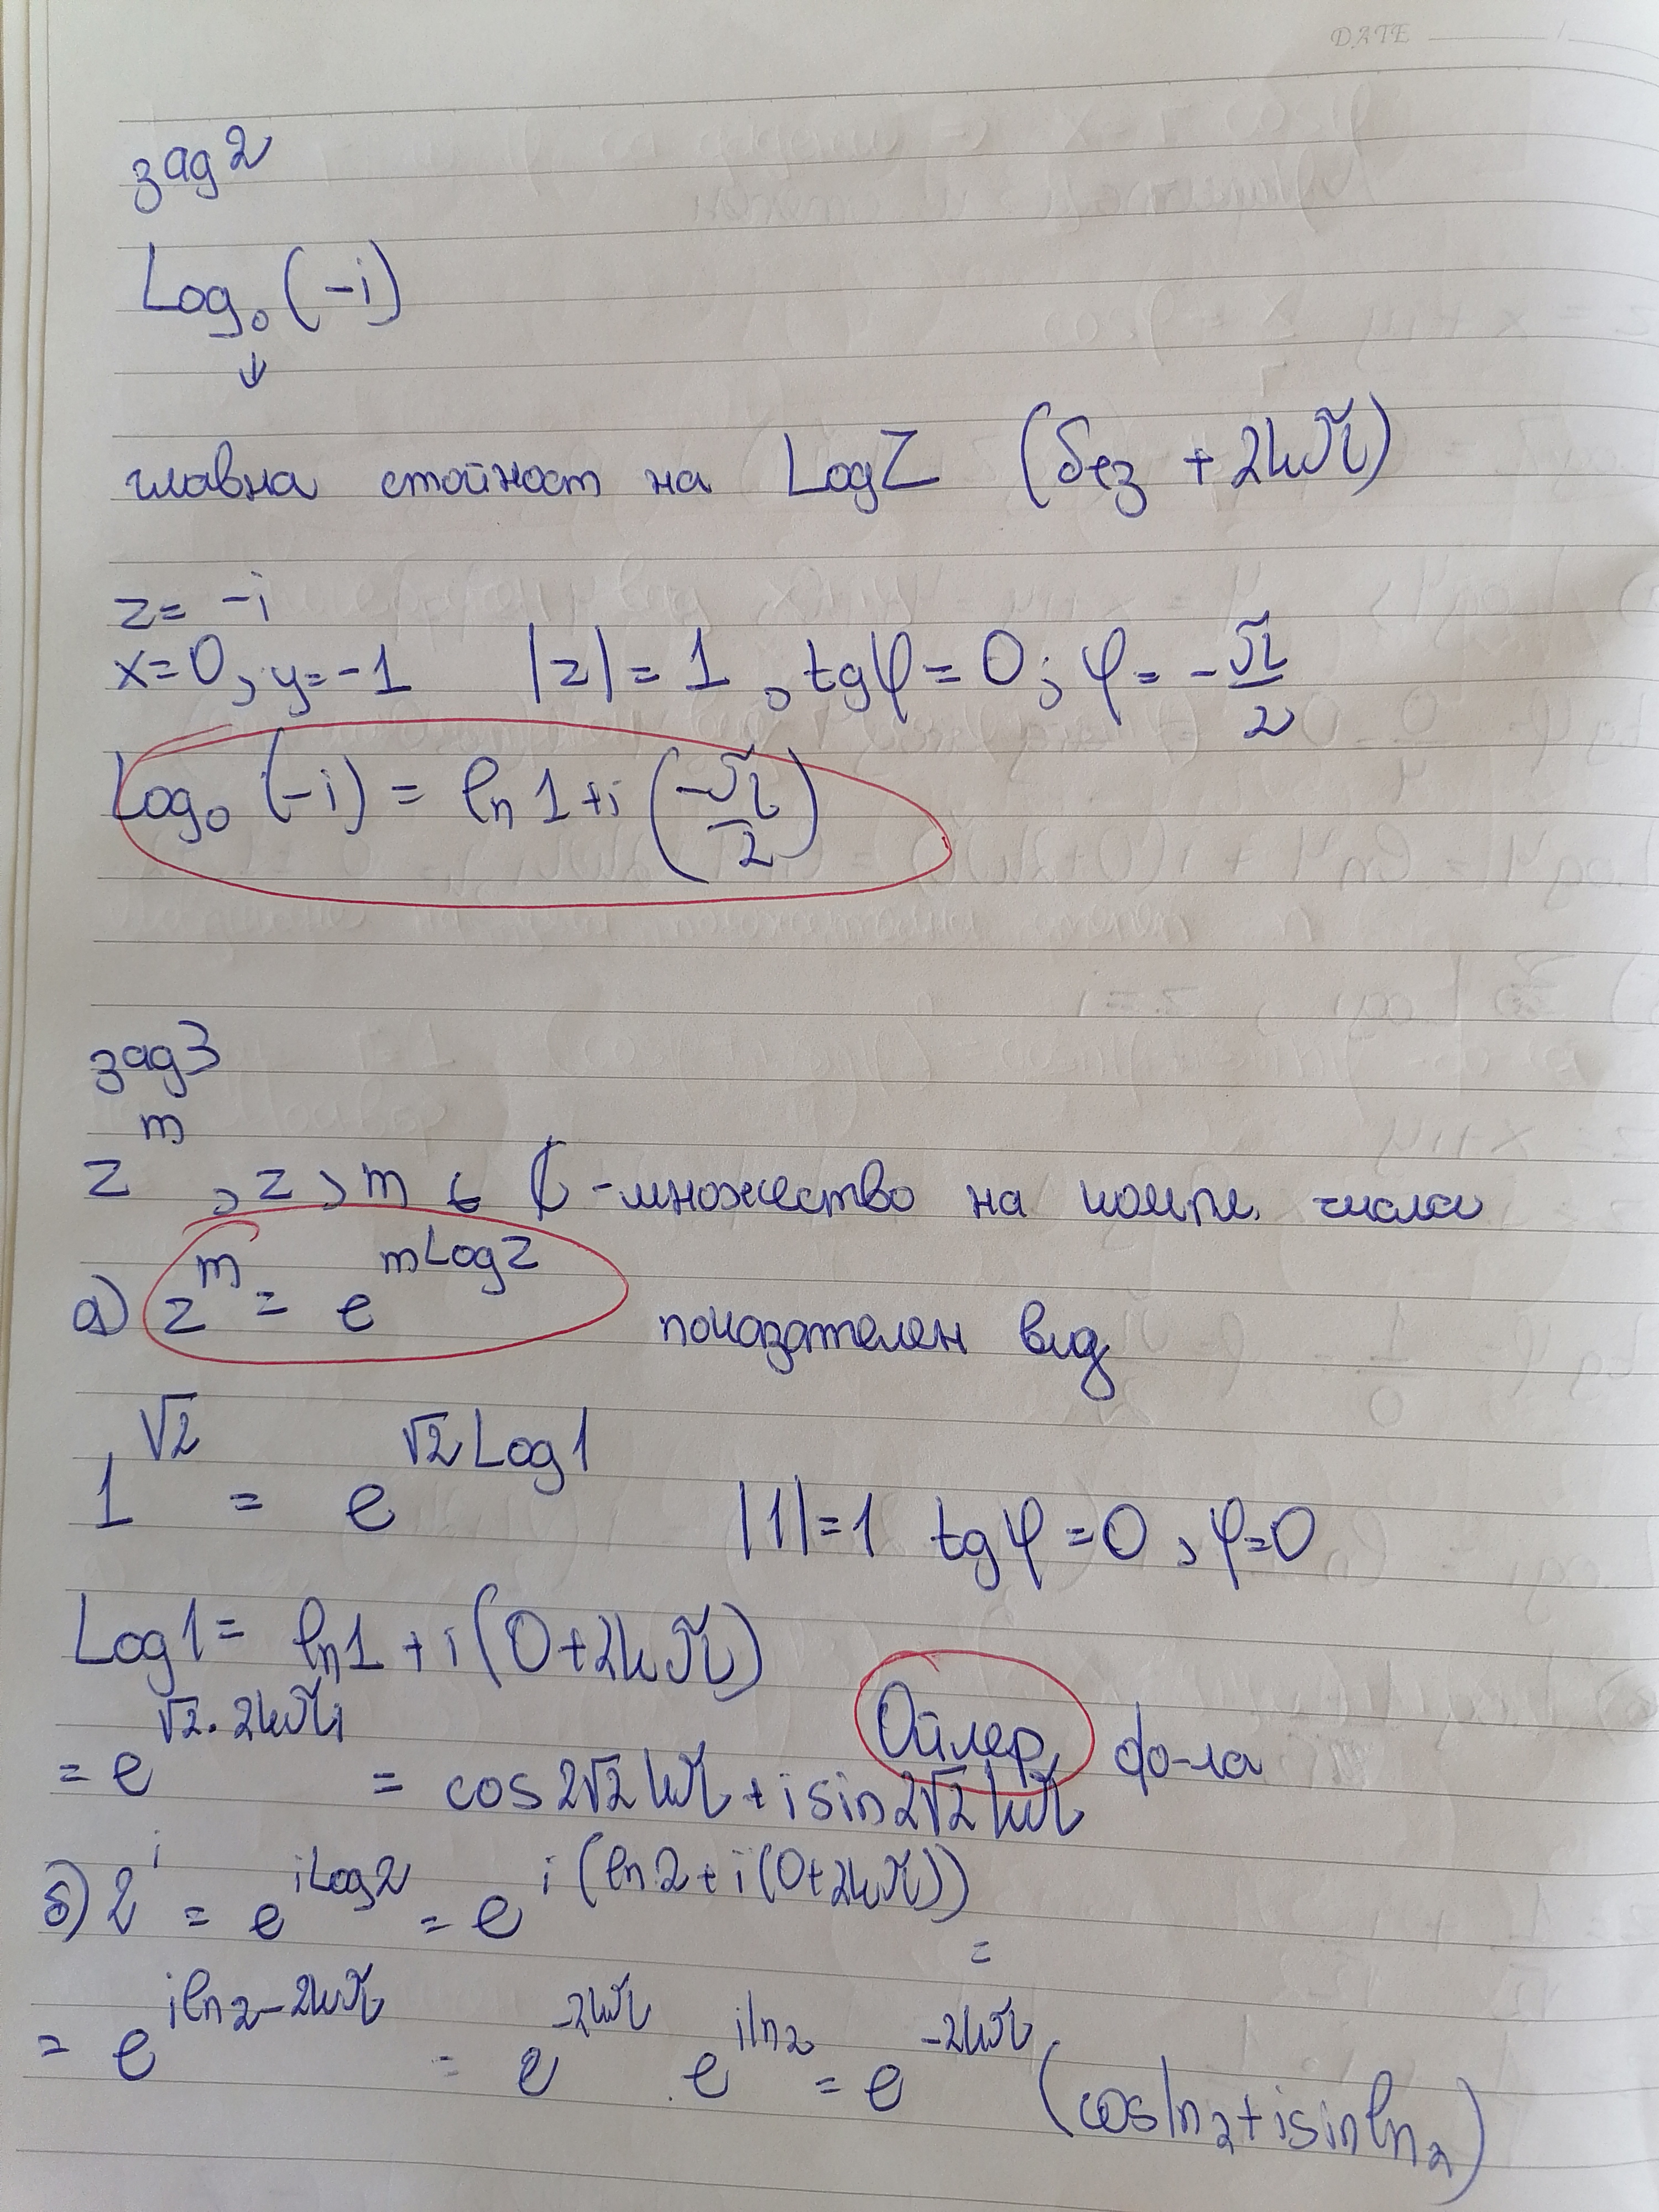 DATE
зад 2
Log₀ (-i)
↓
главна стойност на Log Z (без + 2kπ)
z = -i
x = 0, y = -1 |z| = 1, tgφ = 0; φ = -π/2
Log₀ (-i) = ln 1 + i (-π/2)
зад 3
z^m, z, m ∈ ℂ - множество на компл. числа
а) z^m = e^(m Log z) показателен вид
1^√2 = e^(√2 Log 1) |1| = 1 tgφ = 0, φ = 0
Log 1 = ln 1 + i (0 + 2kπ)
Ойлер ф-ла
= e^(√2 . 2kπi) = cos 2√2 kπ + i sin 2√2 kπ
б) 2^i = e^(i Log 2) = e^(i (ln 2 + i (0 + 2kπ))) =
= e^(i ln 2 - 2kπ) = e^(-2kπ) . e^(i ln 2) = e^(-2kπ) (cos ln 2 + i sin ln 2)